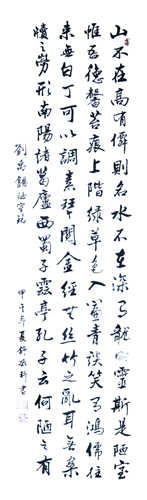 山不在高有僊則名水不在深有龍則靈斯是陋室
惟吾德馨苔痕上階綠草色入簾青談笑有鴻儒往
來無白丁可以調素琴閱金經無絲竹之亂耳無案
牘之勞形南陽諸葛廬西蜀子雲亭孔子云何陋之有
劉禹錫陋室銘
甲午年夏舒書